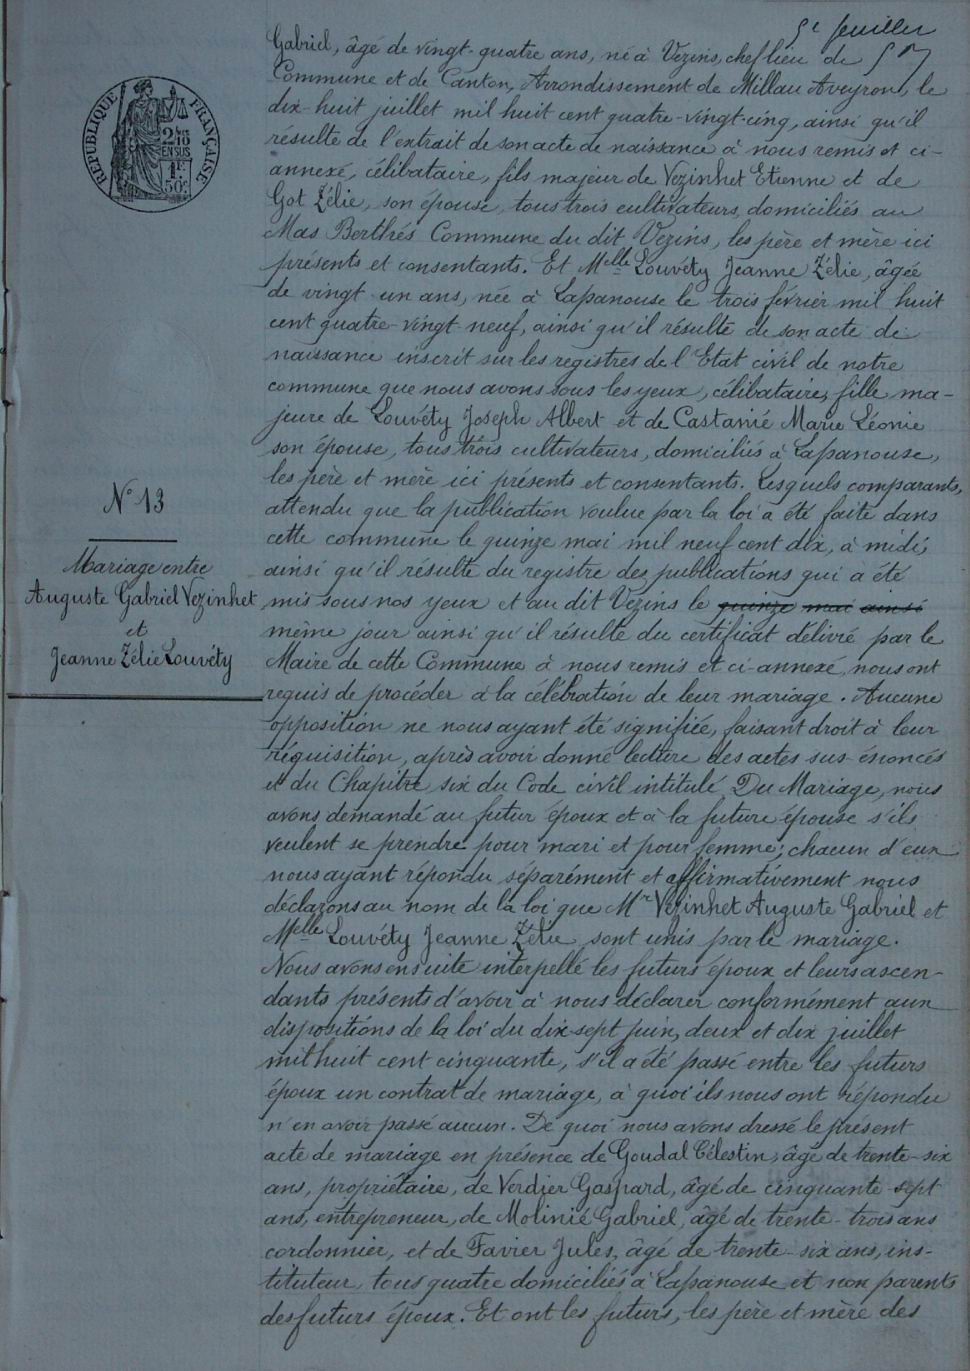 5e feuillet
Gabriel, âgé de vingt-quatre ans, né à Vezins, chef lieu de
Commune et de Canton, Arrondissement de Millau Aveyron, le
dix-huit juillet mil huit cent quatre-vingt-cinq, ainsi qu'il
résulte de l'extrait de son acte de naissance à nous remis et ci-
annexé, célibataire, fils majeur de Vezinhet Etienne et de
Got Zélie, son épouse, tous trois cultivateurs, domiciliés au
Mas Berthés Commune du dit Vezins, les père et mère ici
présents et consentants. Et Melle Louvéty Jeanne Zélie, âgée
de vingt-un ans, née à Lapanouse le trois février mil huit
cent quatre-vingt neuf, ainsi qu'il résulte de son acte de
naissance inscrit sur les registres de l'Etat civil de notre
commune que nous avons sous les yeux, célibataire, fille ma-
jeure de Louvéty Joseph Albert et de Castanié Marie Léonie
son épouse, tous trois cultivateurs, domiciliés à Lapanouse,
les père et mère ici présents et consentants. Lesquels comparants,
attendu que la publication voulue par la loi a été faite dans
cette commune le quinze mai mil neuf cent dix, à midi,
ainsi qu'il résulte du registre des publications qui a été
mis sous nos yeux et au dit Vezins le quinze mai ainsi
même jour ainsi qu'il résulte du certificat délivré par le
Maire de cette Commune à nous remis et ci-annexé, nous ont
requis de procéder à la célébration de leur mariage. Aucune
opposition ne nous ayant été signifiée, faisant droit à leur
réquisition, après avoir donné lecture des actes sus-énoncés
et du Chapitre six du Code civil intitulé Du Mariage, nous
avons demandé au futur époux et à la future épouse s'ils
veulent se prendre pour mari et pour femme; chacun d'eux
nous ayant répondu séparément et affirmativement nous
déclarons au nom de la loi que Mr Vezinhet Auguste Gabriel et
Melle Louvéty Jeanne Zélie sont unis par le mariage.
Nous avons ensuite interpellé les futurs époux et leurs ascen-
dants présents d'avoir à nous déclarer conformément aux
dispositions de la loi du dix-sept juin, deux et dix juillet
mil huit cent cinquante, s'il a été passé entre les futurs
époux un contrat de mariage, à quoi ils nous ont répondu
n'en avoir passé aucun. De quoi nous avons dressé le présent
acte de mariage en présence de Goudal Célestin, âgé de trente-six
ans, propriétaire, de Verdier Gaspard, âgé de cinquante-sept
ans, entrepreneur, de Molinié Gabriel, âgé de trente-trois ans
cordonnier, et de Favier Jules, âgé de trente-six ans, ins-
tituteur, tous quatre domiciliés à Lapanouse et non parents
des futurs époux. Et ont les futurs, les père et mère des
RÉPUBLIQUE FRANÇAISE
2/10
EN SUS
1F.
50c.
N° 13
Mariage entre
Auguste Gabriel Vezinhet
et
Jeanne Zélie Louvéty